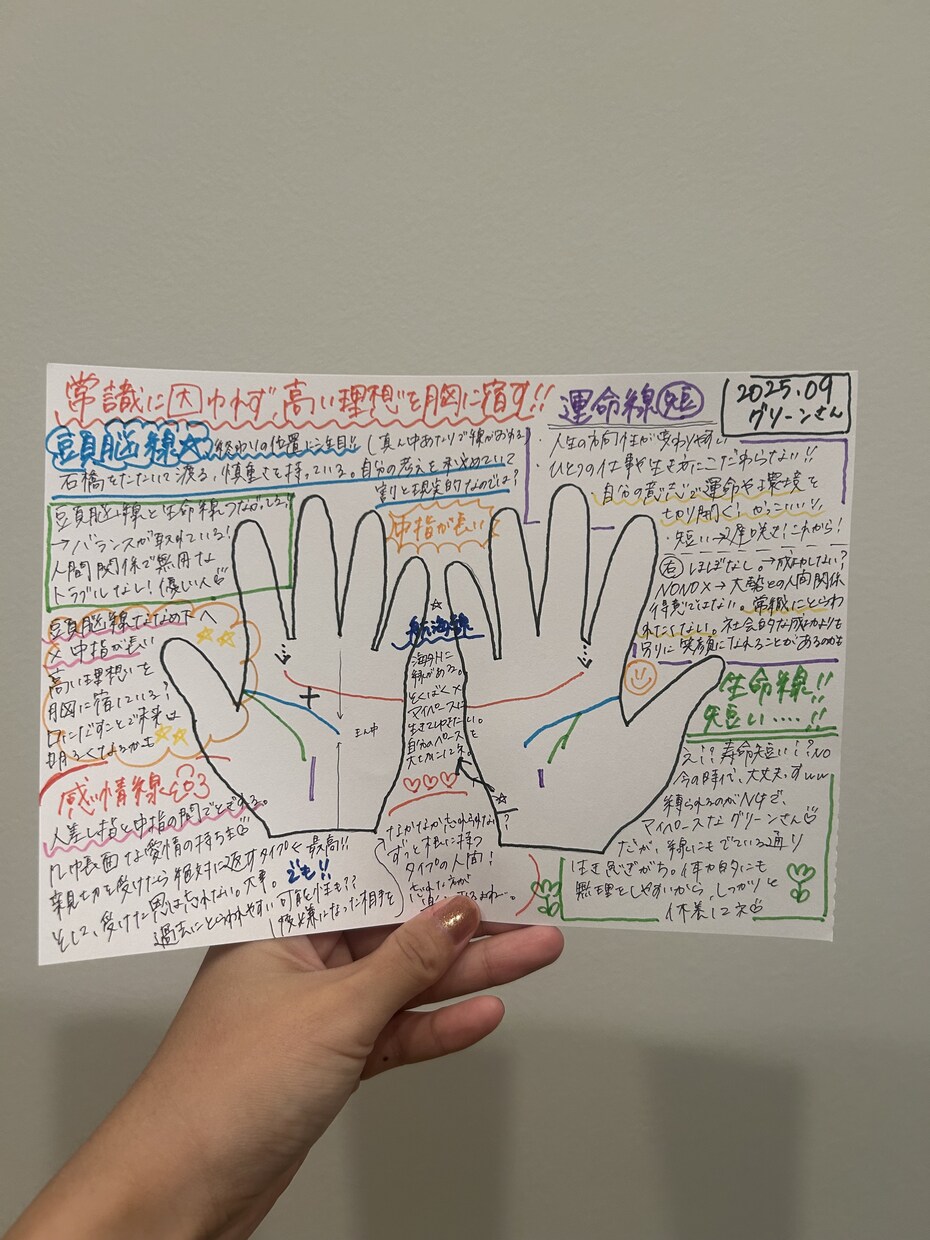 常識に囚われず、高い理想を胸に宿す!!
2025.09
グリーンさん
頭脳線☆ 終わりの位置に注目!! (真ん中あたりで線がおわる)
石橋をたたいて渡る、慎重さを持っている。自分の考えを
割と現実的なのでは?
頭脳線と生命線つながってる。
→バランスが取れている!
人間関係で無用な
トラブルなし!優しい人
頭脳線ななめ下へ
× 中指が長い
高い理想を
胸に宿している?
口にだすことで未来は
明るくなるかも
感情線
人差し指と中指の間でとぎれる。
几帳面な愛情の持ち主
親切を受けたら絶対に返すタイプ<最高!!
そして、受けた恩は忘れない。大事。 でも!!
過去にとらわれやすい可能性も??
(疎遠になった相手を
なかなか忘れられない?
ずっと根に持つ
タイプの人間!
中指が長い
まん中
☆
航海線
海外に
縁がある。
そくばく×
マイペースに
生きてゆきたい。
自分のペースを
大切にネ。
運命線(短)
・人生の方向性が変わりやすい
・ひとつの仕事や生き方にこだわらない!!
自分の意志で運命や環境を
切り開く!かっこいい!!
・短い→遅咲き!これから!
(右)ほぼなし。→成功しない?
NONO×→大勢との人間関係
得意ではない。常識にとらわ
れたくない。社会的な成功よりも
周りに笑顔になれることがあるのかも
生命線!!
短い....!!
え!?寿命短い!?NO
今の時代、大丈夫ですww
縛られるのがNGで、
マイペースなグリーンさん
だが、線にもでている通り
生き急ぎがち。体力的にも
無理をしやすいから、しっかりと
休養してネ